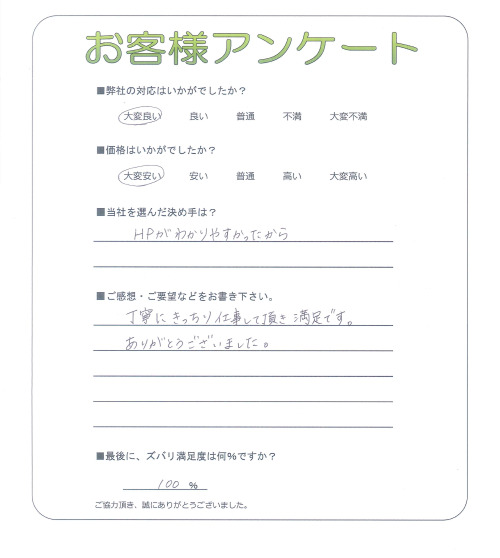 お客様アンケート
■弊社の対応はいかがでしたか？
大変良い 良い 普通 不満 大変不満
■価格はいかがでしたか？
大変安い 安い 普通 高い 大変高い
■当社を選んだ決め手は？
HPがわかりやすかったから
■ご感想・ご要望などをお書き下さい。
丁寧にきっちり仕事して頂き満足です。
ありがとうございました。
■最後に、ズバリ満足度は何％ですか？
100 ％
ご協力頂き、誠にありがとうございました。